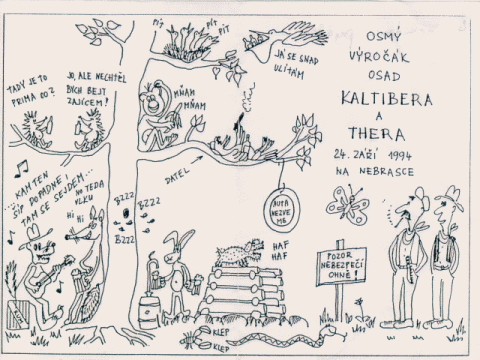 PÍT
PÍT
PÍT
JÁ SE SNAD
ULÍTÁM
OSMÝ
VÝROČÁK
OSAD
KALTIBERA
A
THERA
24. ZÁŘÍ 1994
NA NEBRASCE
TADY JE TO
PRIMA CO?
JO, ALE NECHTĚL
BYCH BEJT
ZAJÍCEM!
MŇAM
MŇAM
DATEL
KAM TEN
ŠÍP DOPADNE!
TAM SE SEJDEM...
NO TEDA
VLKU
HI HI
BZZZ
BZZZ
BZZZ
BZZZ
HAF
HAF
POZOR
NEBEZPEČÍ
OHNĚ!
KLEP
KLEP